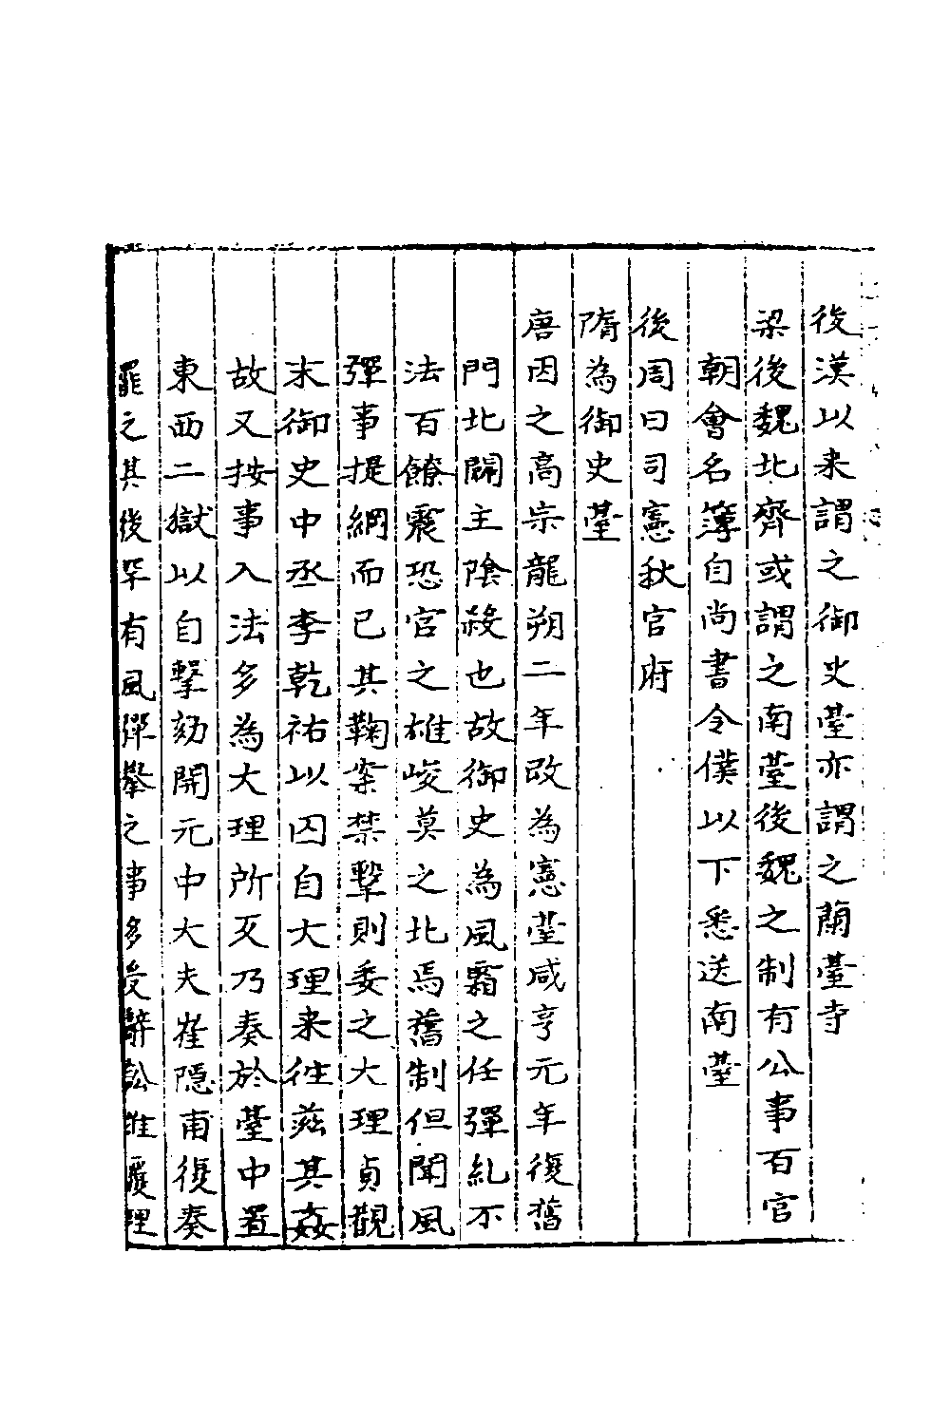 後漢以来謂之御史臺亦謂之蘭臺寺
梁後魏北齊或謂之南臺後魏之制有公事百官
朝會名簿自尚書令僕以下悉送南臺
後周曰司憲秋官府
隋為御史臺
唐因之高宗龍朔二年改為憲臺咸亨元年復舊
門北闢主陰殺也故御史為風霜之任彈糺不
法百僚震恐官之雄峻莫之比焉舊制但聞風
彈事提綱而已其鞠案禁擊則委之大理貞觀
末御史中丞李乾祐以囚自大理来往滋其姦
故又按事入法多為大理所反乃奏於臺中置
東西二獄以自擊劾開元中大夫崔隱甫復奏
罷之其後罕有風彈舉之事多受辭訟推覆理